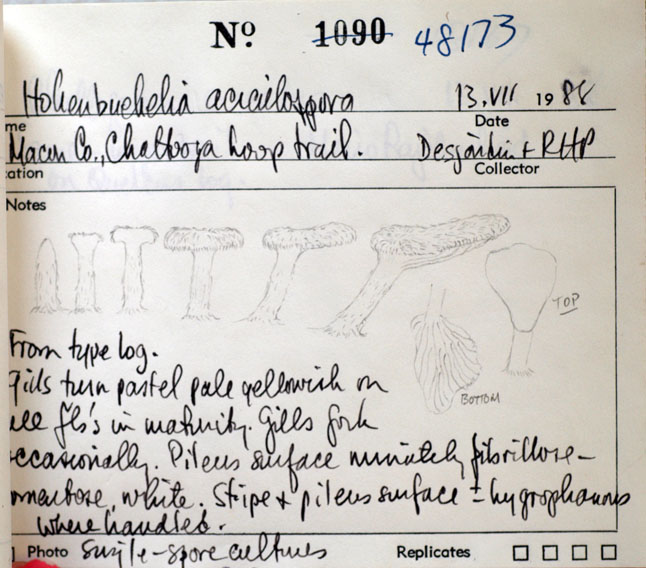 Nº 1090 48173
Hohenbuehelia aciculospora 13.VII 1988
me Date
Macon Co., Chattooga Loop trail. Desjardin + RHP
ation Collector
Notes
TOP
BOTTOM
From type log.
Gills turn pastel pale yellowish on
all fb's in maturity. Gills fork
occasionally. Pileus surface minutely fibrillose-
omentose, white. Stipe + pileus surface ± hygrophanous
where handled.
Photo single-spore cultures Replicates